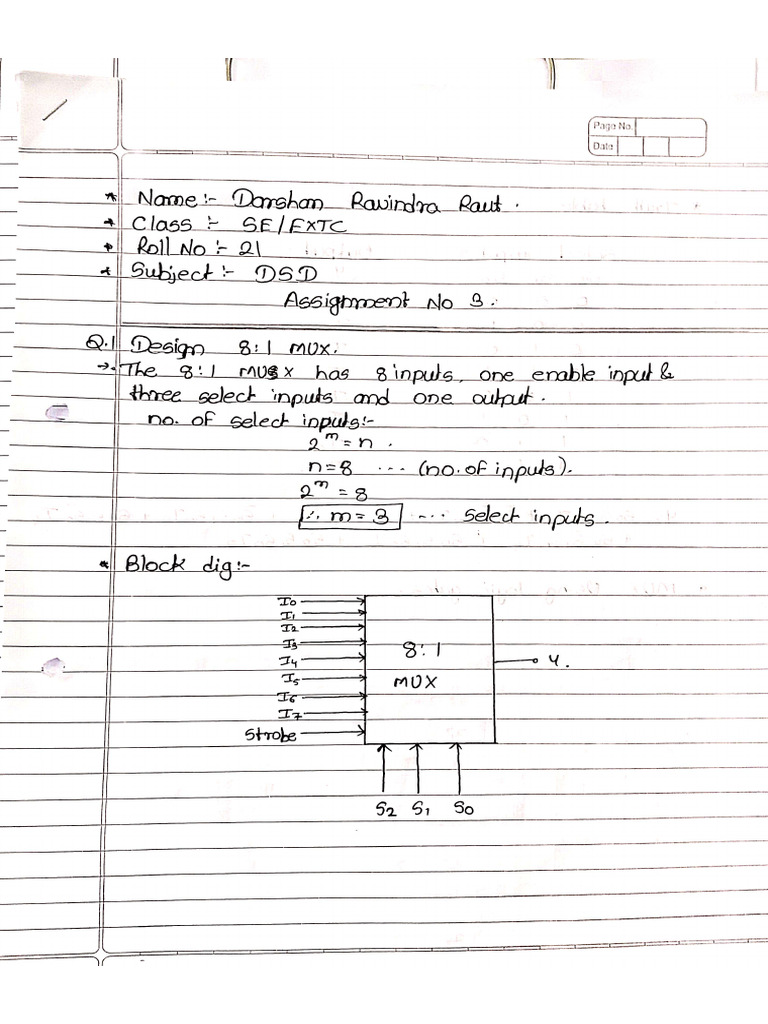 Page No.
Date
* Name :- Darshan Ravindra Raut.
* Class :- SE/EXTC
* Roll No :- 21
* Subject :- DSD
Assignment No 3.
Q.1 Design 8:1 MUX.
→ The 8:1 MUX has 8 inputs, one enable input &
three select inputs and one output.
no. of select inputs:-
2^m = n .
n = 8 ... (no. of inputs).
2^m = 8
∴ m = 3 ... select inputs.
* Block dig:-
I0
I1
I2
I3
I4
I5
I6
I7
Strobe
8:1
MUX
Y.
S2 S1 S0